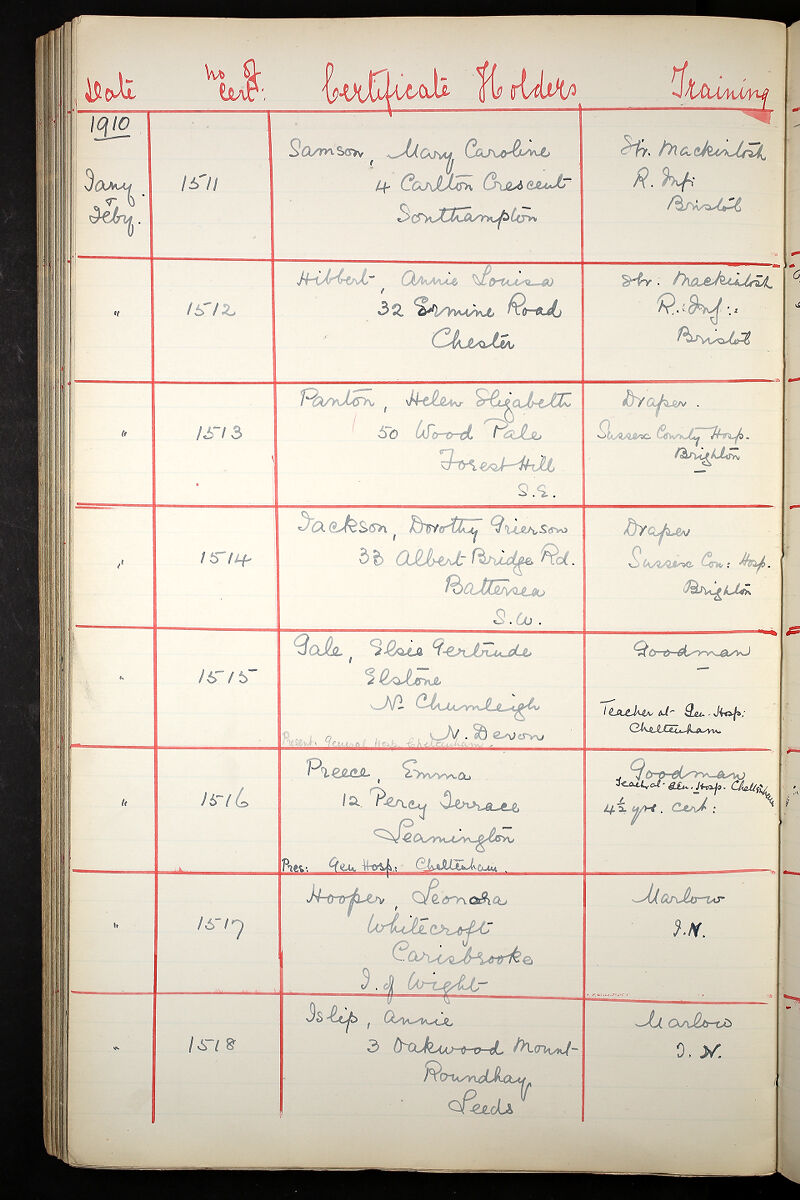 Date no of Cert: Certificate Holders Training
1910
Samson, Mary Caroline Str. Mackintosh
Jany. 1511 4 Carlton Crescent R. Inf:
& Feby. Southampton Bristol
Hibbert, Annie Louisa Str. Mackintosh
" 1512 32 Ermine Road R. Inf::
Chester Bristol
Panton, Helen Elizabeth Draper.
" 1513 50 Wood Vale Sussex County Hosp.
Forest Hill Brighton
S.E.
Jackson, Dorothy Grierson Draper
" 1514 33 Albert Bridge Rd. Sussex Cou: Hosp.
Battersea Brighton
S.W.
Gale, Elsie Gertrude Goodman
" 1515 Elstone
Nr Chumleigh Teacher at Gen. Hosp:
N. Devon Cheltenham
Present. General Hosp. Cheltenham.
Preece, Emma Goodman
Teach. at Gen. Hosp. Cheltenham
" 1516 12 Percy Terrace 4½ yrs. cert:
Leamington
Pres: Gen Hosp: Cheltenham.
Hooper, Leonora Marlow
" 1517 Whitecroft I.N.
Carisbrooke
I. of Wight
Islip, Annie Marlow
" 1518 3 Oakwood Mount I. N.
Roundhay
Leeds